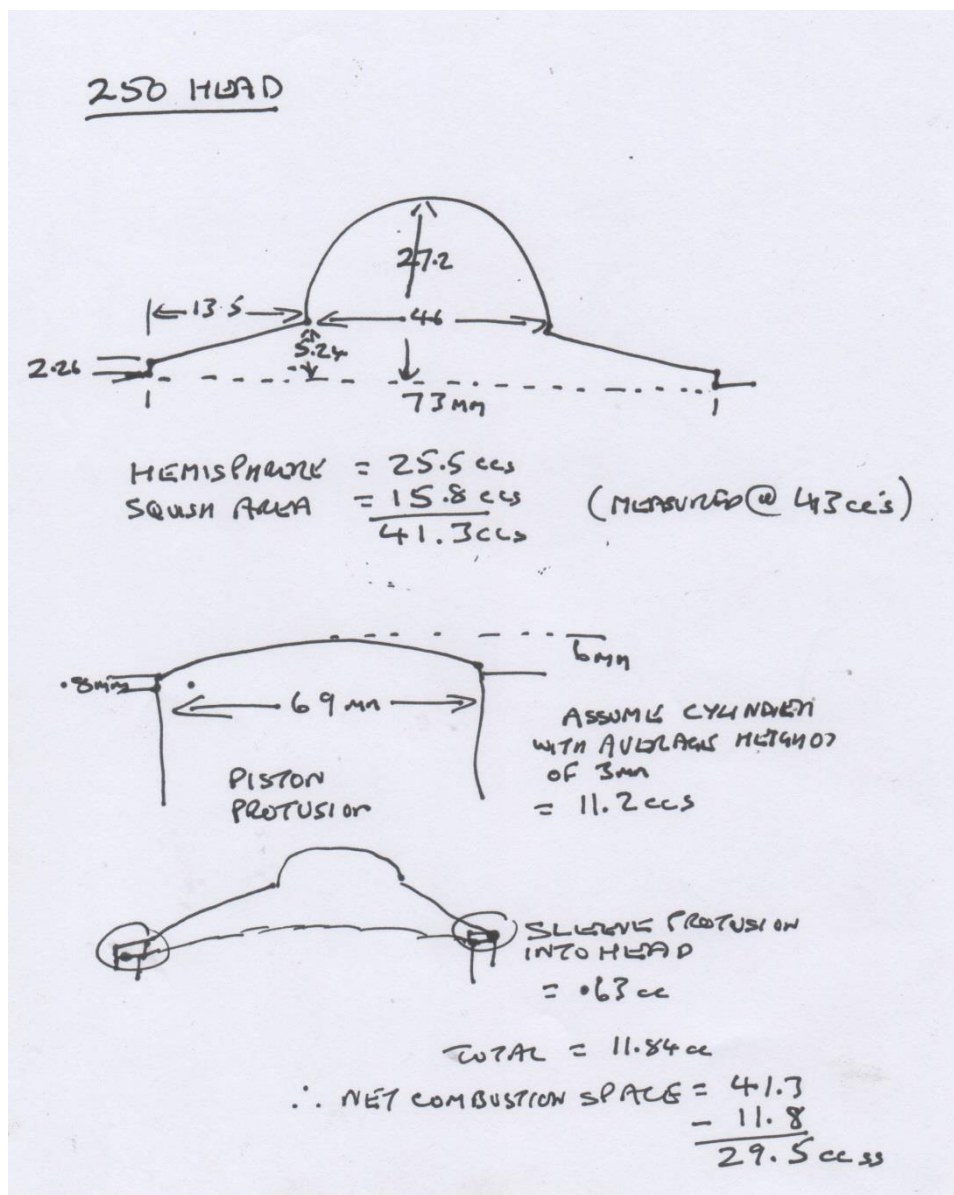 250 HEAD
27.2
13.5
46
5.24
2.26
73 MM
HEMISPHERE = 25.5 ccs
SQUISH AREA = 15.8 ccs (MEASURED @ 43 cc's)
41.3 ccs
6mm
.8mm
69 mm
ASSUME CYLINDER
WITH AVERAGE HEIGHT
OF 3mm
= 11.2 ccs
PISTON
PROTUSION
SLEEVE PROTUSION
INTO HEAD
= .63 cc
TOTAL = 11.84 cc
∴ NET COMBUSTION SPACE = 41.3
- 11.8
29.5 cc ss